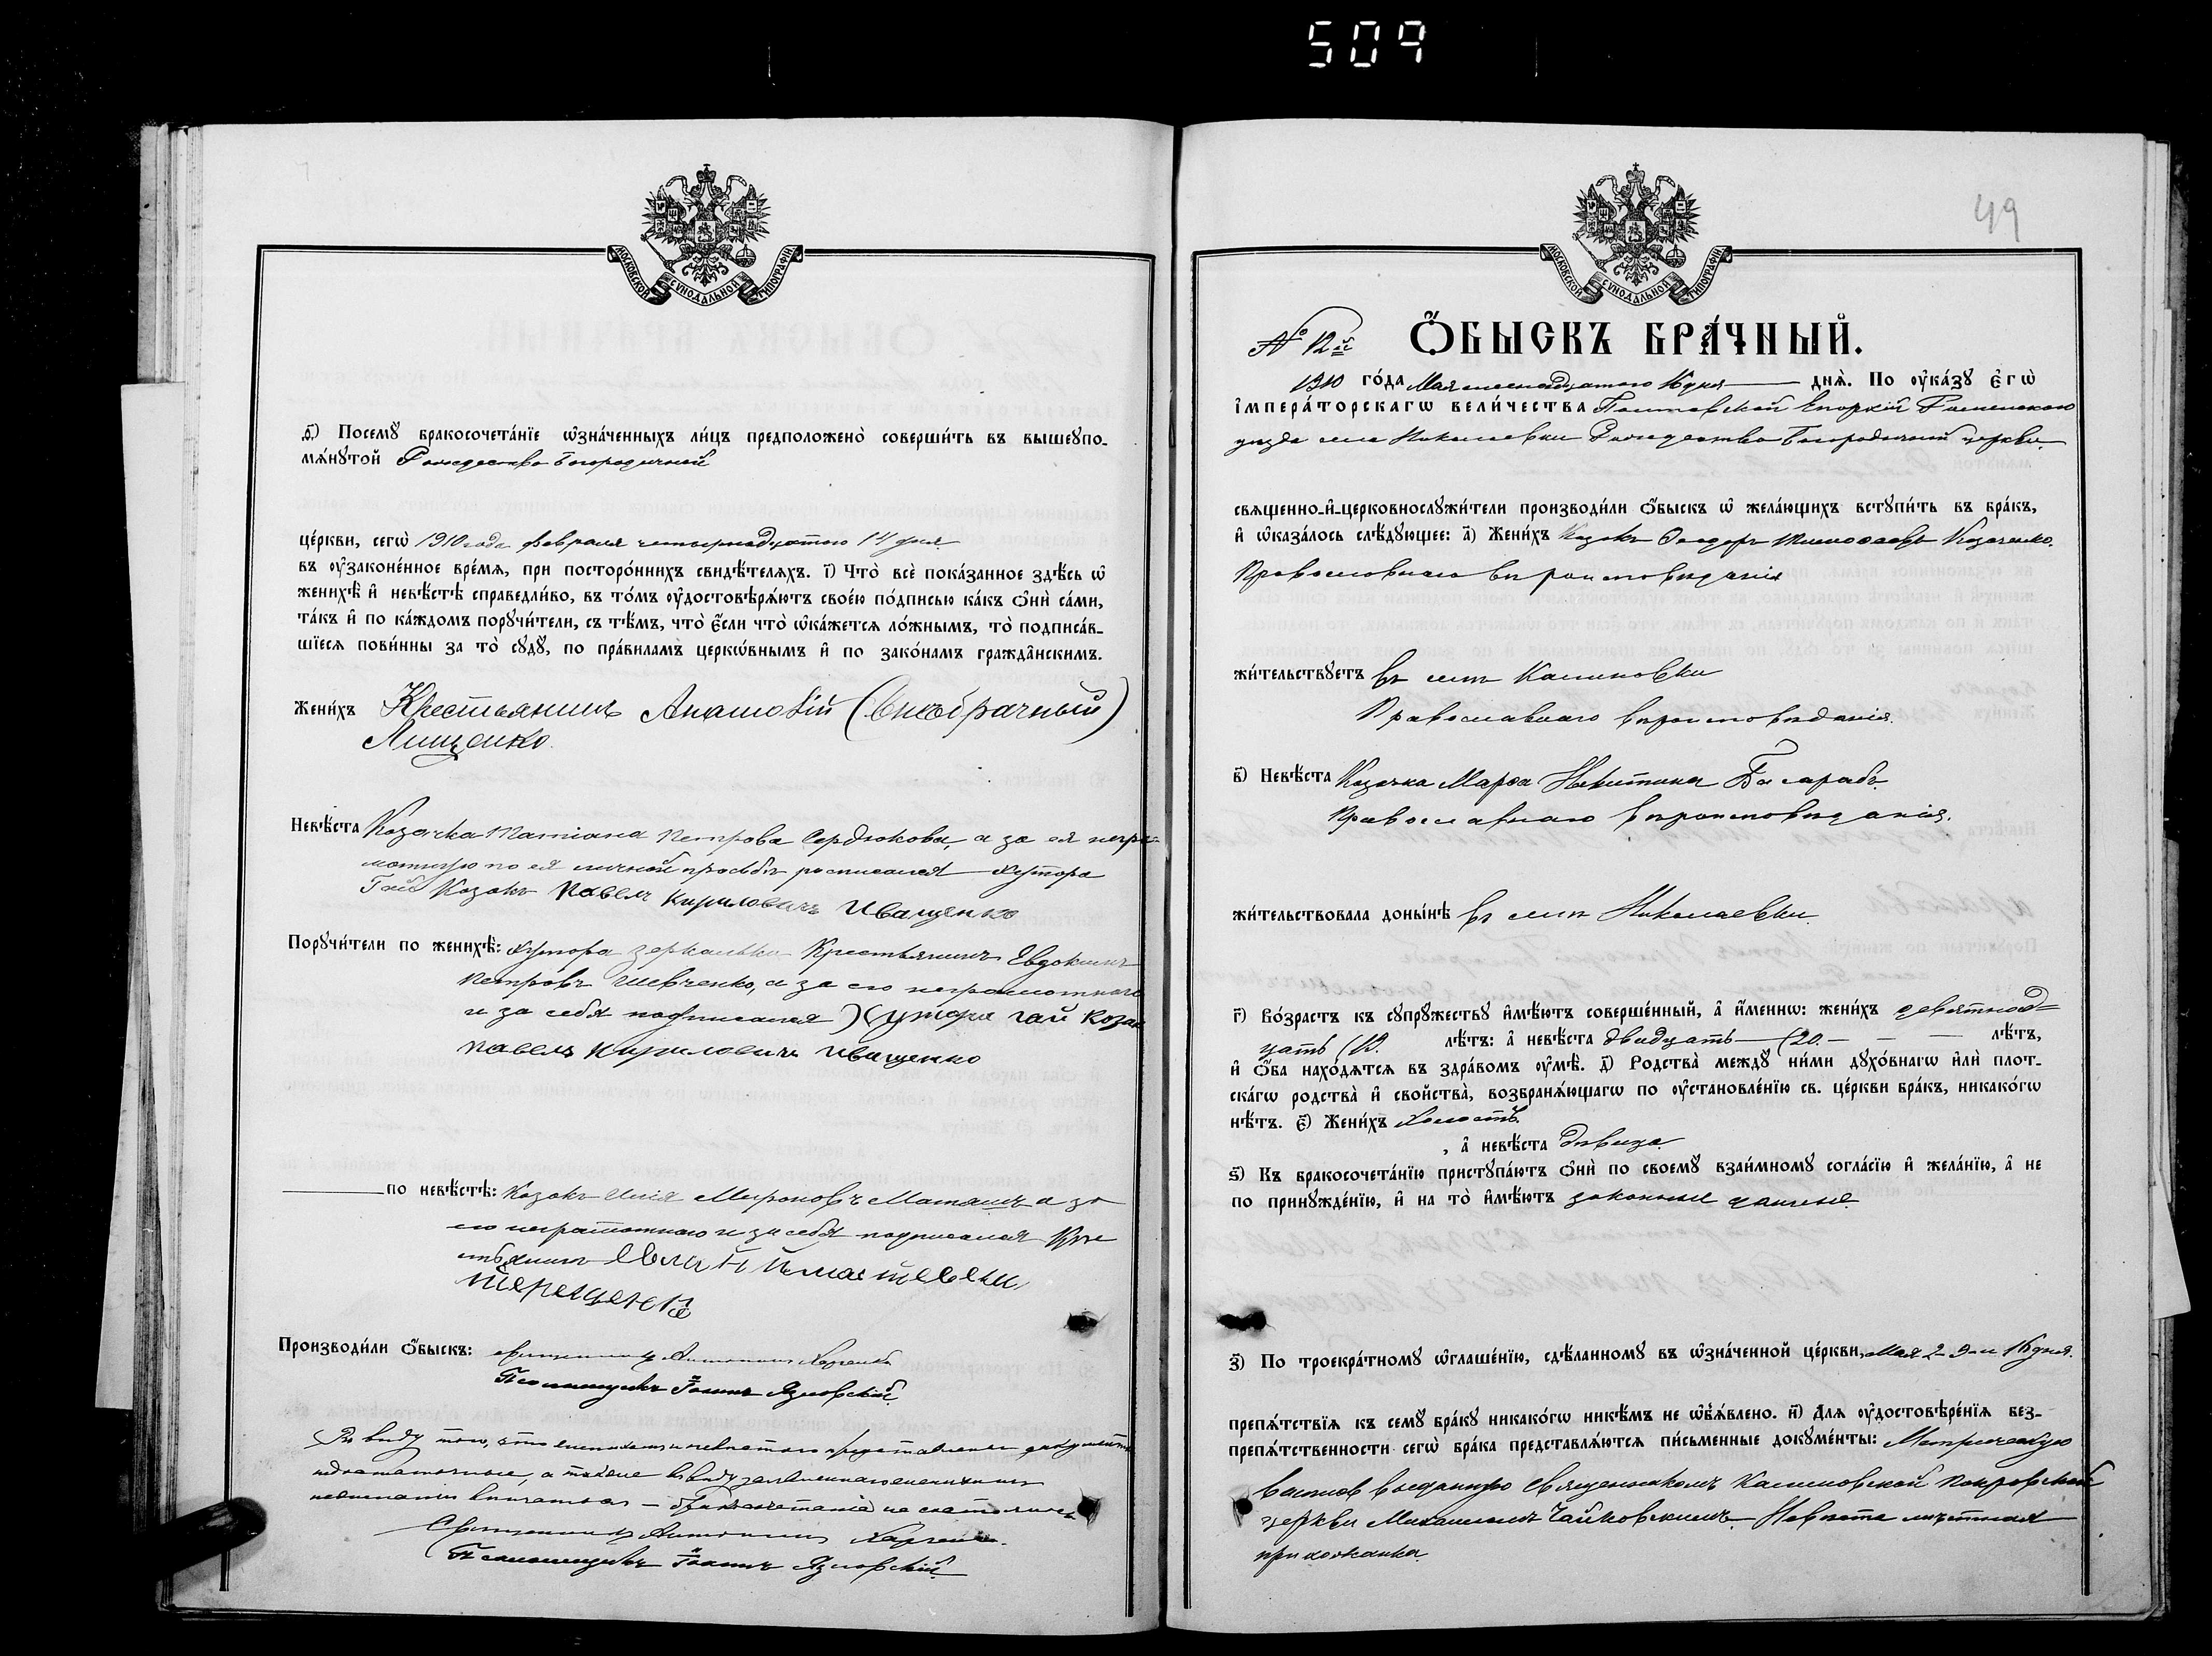 509
МОСКОВСКОЙ СѴНОДАЛЬНОЙ ТИПОГРАФІИ
ѳ҃) Посемꙋ̀ бракосочета́нїе ѡ҆зна́ченныхъ ли́цъ предположено̀ соверши́ть въ вышеꙋпо-
мѧ́нꙋтой Рождество Богородичной
це́ркви, сегѡ̀ 1910 года Февраля четырнадцатого 14 дня
въ ᲂу҆законе́нное вре́мѧ, при посторо́ннихъ свидѣ́телѧхъ. і҃) Что̀ всѐ пока́занное здѣ́сь ѡ҆
женихѣ̀ и҆ невѣ́стѣ справедли́во, въ то́мъ ᲂу҆достовѣрѧ́ютъ свое́ю по́дписью ка́къ ѻ҆нѝ са́ми,
та́къ и҆ по ка́ждомъ порꙋчи́тели, съ тѣ́мъ, что̀ є҆́сли что̀ ѡ҆ка́жетсѧ ло́жнымъ, то̀ подписа́в-
шїесѧ пови́нны за то̀ сꙋдꙋ̀, по пра́виламъ церкѡ́внымъ и҆ по зако́намъ гражда̂нскимъ.
Жени́хъ Крестьянинъ Анатолій (внебрачный)
Лищенко.
Невѣ́ста Козачка Татіана Петрова Сердюкова, а за ея негра-
мотную по ея личной просьбѣ росписался хутора
Гай Козакъ Павелъ Кириловичъ Иващенко
Порꙋчи́тели по женихѣ̀: хутора Зеркальки Крестьянинъ Евдокимъ
Петровъ Шевченко, а за его неграмотнаго
и за себя подписался хутора Гай Козак
Павелъ Кириловичъ Иващенко
по невѣ́стѣ: Козакъ Илія Мироновъ а за
его неграмотнаго и за себя подписался Кре
стьянинъ
Терещенко
Производи́ли ѻ҆́быскъ: Священникъ Антонин Харченко
Псаломщикъ Іоаннъ Язловскій
Въ виду того, что женихомъ и невѣстою представлены документы
недостаточные, а также въ виду заявленнаго женихомъ
нежеланія вѣнчаться – бракосочетаніе не состоялось
Священникъ Антонин Харченко.
Псаломщикъ Іоаннъ Язловскій
49
МОСКОВСКОЙ СѴНОДАЛЬНОЙ ТИПОГРАФІИ
№ 12й Ѻ҆́БЫСКЪ БРА́ЧНЫЙ.
1910 го́да Мая шеснадцатого 16 дня днѧ̀. По ᲂу҆ка́зꙋ є҆гѡ̀
і҆мпера́торскагѡ вели́чества Полтавской Епархіи Роменского
уѣзда села Николаевки Рождество Богородичной церкви
свѧщенно-и҆-церковнослꙋжи́тели производи́ли ѻ҆́быскъ ѡ҆ жела́ющихъ встꙋпи́ть въ бра́къ,
и҆ ѡ҆каза́лось слѣ́дꙋющее: а҃) Жени́хъ Козакъ Ѳеодоръ Козаченко.
Православнаго вѣроисповѣданія
жи́тельствꙋетъ въ селѣ Калиновки
Православнаго вѣроисповѣданія.
в҃) Невѣ́ста Козачка Марѳа Никитина Басарабъ.
Православнаго вѣроисповѣданія.
жи́тельствовала доны́нѣ въ селѣ Николаевки.
г҃) Во́зрастъ къ сꙋпрꙋ́жествꙋ и҆мѣ́ютъ соверше́нный, а҆ и҆́меннѡ: жени́хъ девятнад-
цать (19. лѣ́тъ: а҆ невѣ́ста двадцать (20. лѣ́тъ,
и҆ ѻ҆́ба нахо́дѧтсѧ въ здра́вомъ ᲂу҆мѣ̀. д҃) Родства̀ междꙋ̀ ни́ми дꙋхо́внагѡ и҆лѝ плот-
ска́гѡ родства̀ и҆ сво́йства̀, возбранѧ́ющагѡ по ᲂу҆становле́нїю св. це́ркви бра́къ, никако́гѡ
нѣ́тъ. є҃) Жени́хъ Холостъ
, а҆ невѣ́ста дѣвица.
ѕ҃) Къ бракосочета́нїю пристꙋпа́ютъ ѻ҆нѝ по своемꙋ̀ взаи́мномꙋ согла́сїю и҆ жела́нїю, а҆ не
по принꙋжде́нїю, и҆ на то̀ и҆мѣ́ютъ законные данные.
з҃) По троекра́тномꙋ ѡ҆глаше́нїю, сдѣ́ланномꙋ въ ѡ҆зна́ченной це́ркви, Мая 2 9 и 16 дня.
препѧ́тствїѧ къ семꙋ̀ бра́кꙋ никако́гѡ никѣ́мъ не ѡ҆б̾ѧ́влено. и҃) Длѧ̀ ᲂу҆достовѣре́нїѧ без-
препѧ́тственности сегѡ̀ бра́ка представлѧ́ютсѧ пи́сьменные докꙋме́нты: Метрическую
выпись выданную Священникомъ Калиновской Покровской
церкви Михаиломъ Чайковскимъ. Невѣста мѣстная
прихожанка.